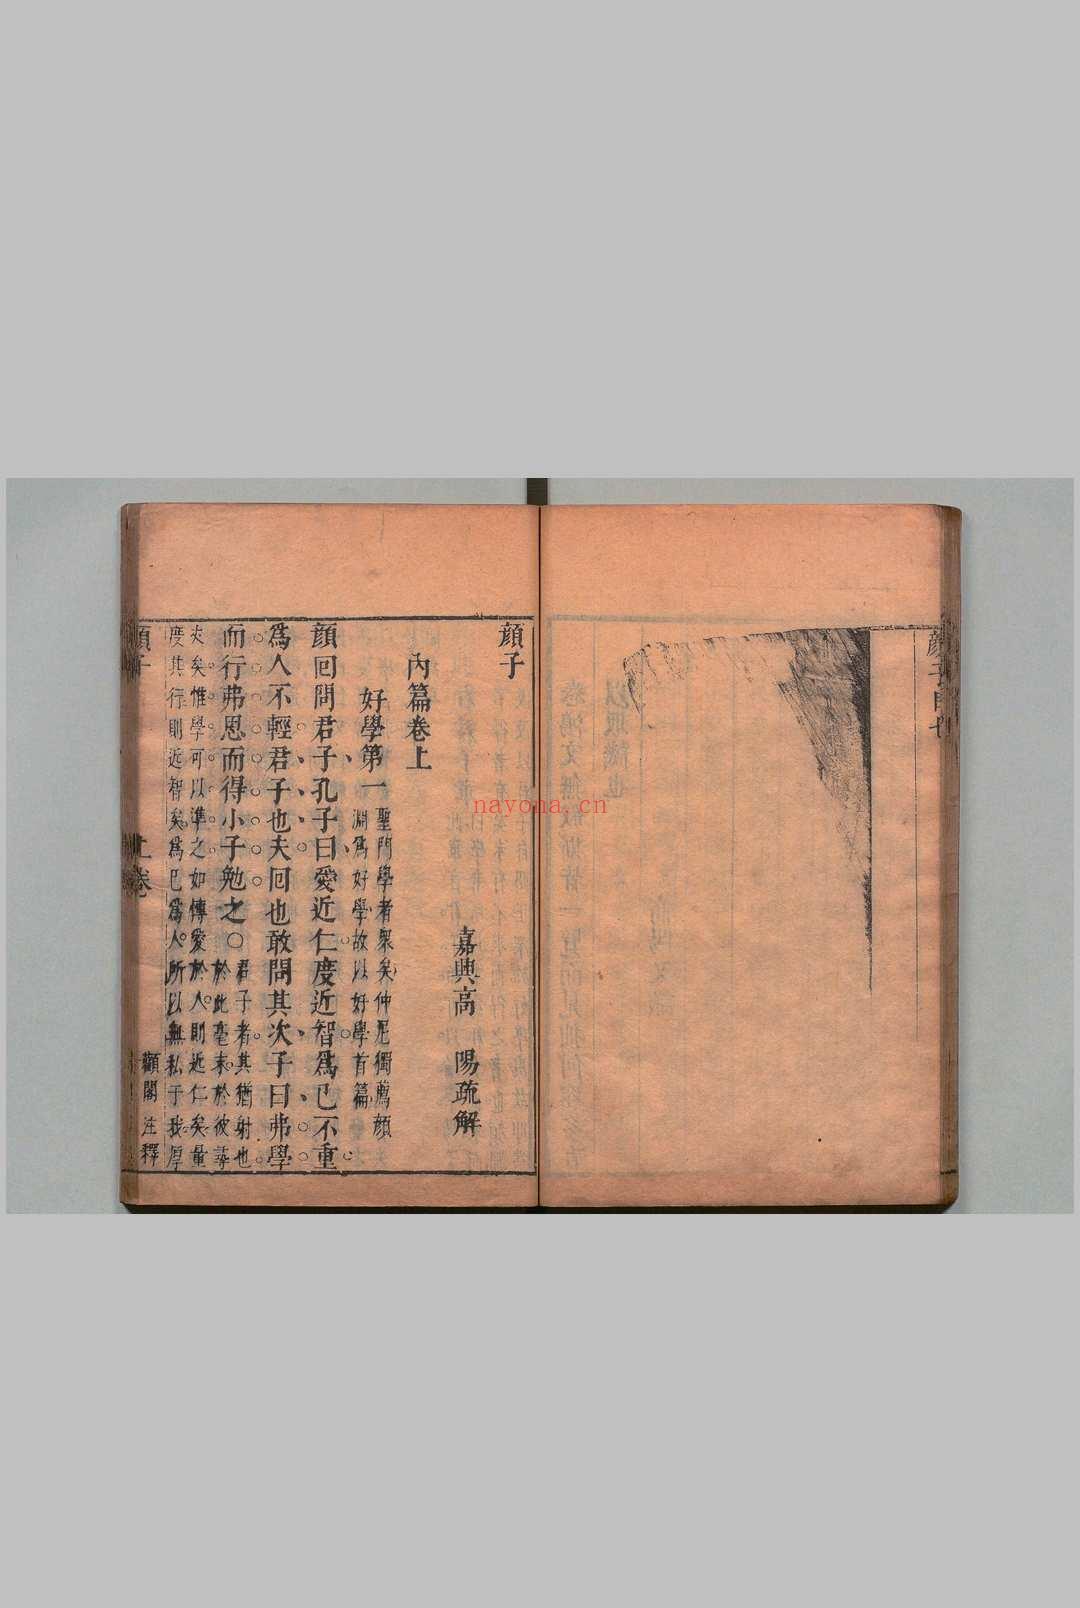 顔子
嘉興高　陽疏解
內篇卷上
好學第一
聖門學者衆矣仲尼獨薦顔
淵爲好學故以好學首篇
顔囘問君子孔子曰愛近仁度近智爲己不重
爲人不輕君子也夫囘也敢問其次子曰弗學
而行弗思而得小子勉之○
君子者其猶射也
於此毫末於彼尋
丈矣惟學可以準之如傳愛於人則近仁矣量
度其行則近智矣爲己爲人所以無私于我厚
顔子
上卷
顧閣 注釋
nayona.cn